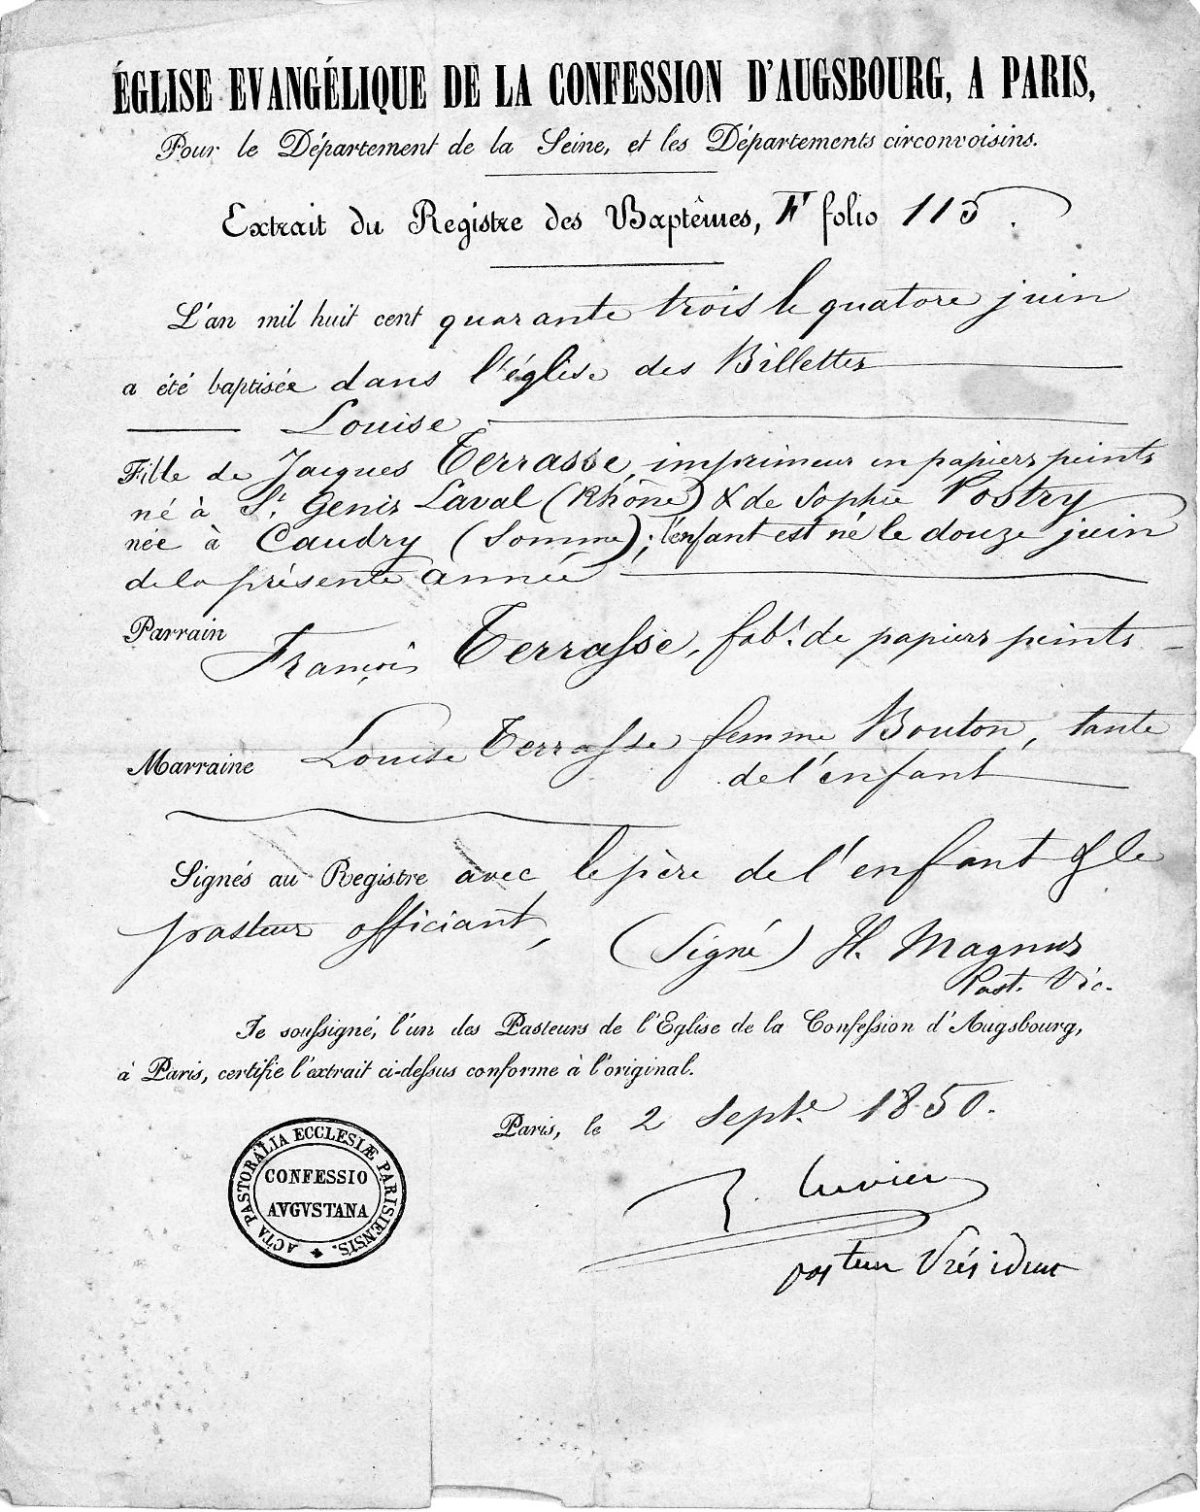 ÉGLISE EVANGÉLIQUE DE LA CONFESSION D'AUGSBOURG, A PARIS,
Pour le Département de la Seine, et les Départements circonvoisins.
Extrait du Registre des Baptêmes, F folio 115.
L'an mil huit cent quarante trois le quatore juin
a été baptisée dans l'église des Billettes
Louise
Fille de Jacques Terrasse, imprimeur en papiers peints
né à St. Genis Laval (Rhône) & de Sophie Postry
née à Caudry (Somme); l'enfant est né le douze juin
de la présente année
Parrain François Terrasse, fabt. de papiers peints
Marraine Louise Terrasse femme Bouton, tante
de l'enfant
Signés au Registre avec le père de l'enfant & le
pasteur officiant, (signé) H. Magnus
Past. Vic.
Je soussigné, l'un des Pasteurs de l'Eglise de la Confession d'Augsbourg,
à Paris, certifie l'extrait ci-dessus conforme à l'original.
Paris, le 2 septe. 1850.
ACTA PASTORALIA ECCLESIÆ PARISIENSIS.
CONFESSIO
AVGVSTANA
Cuvier
pasteur Président